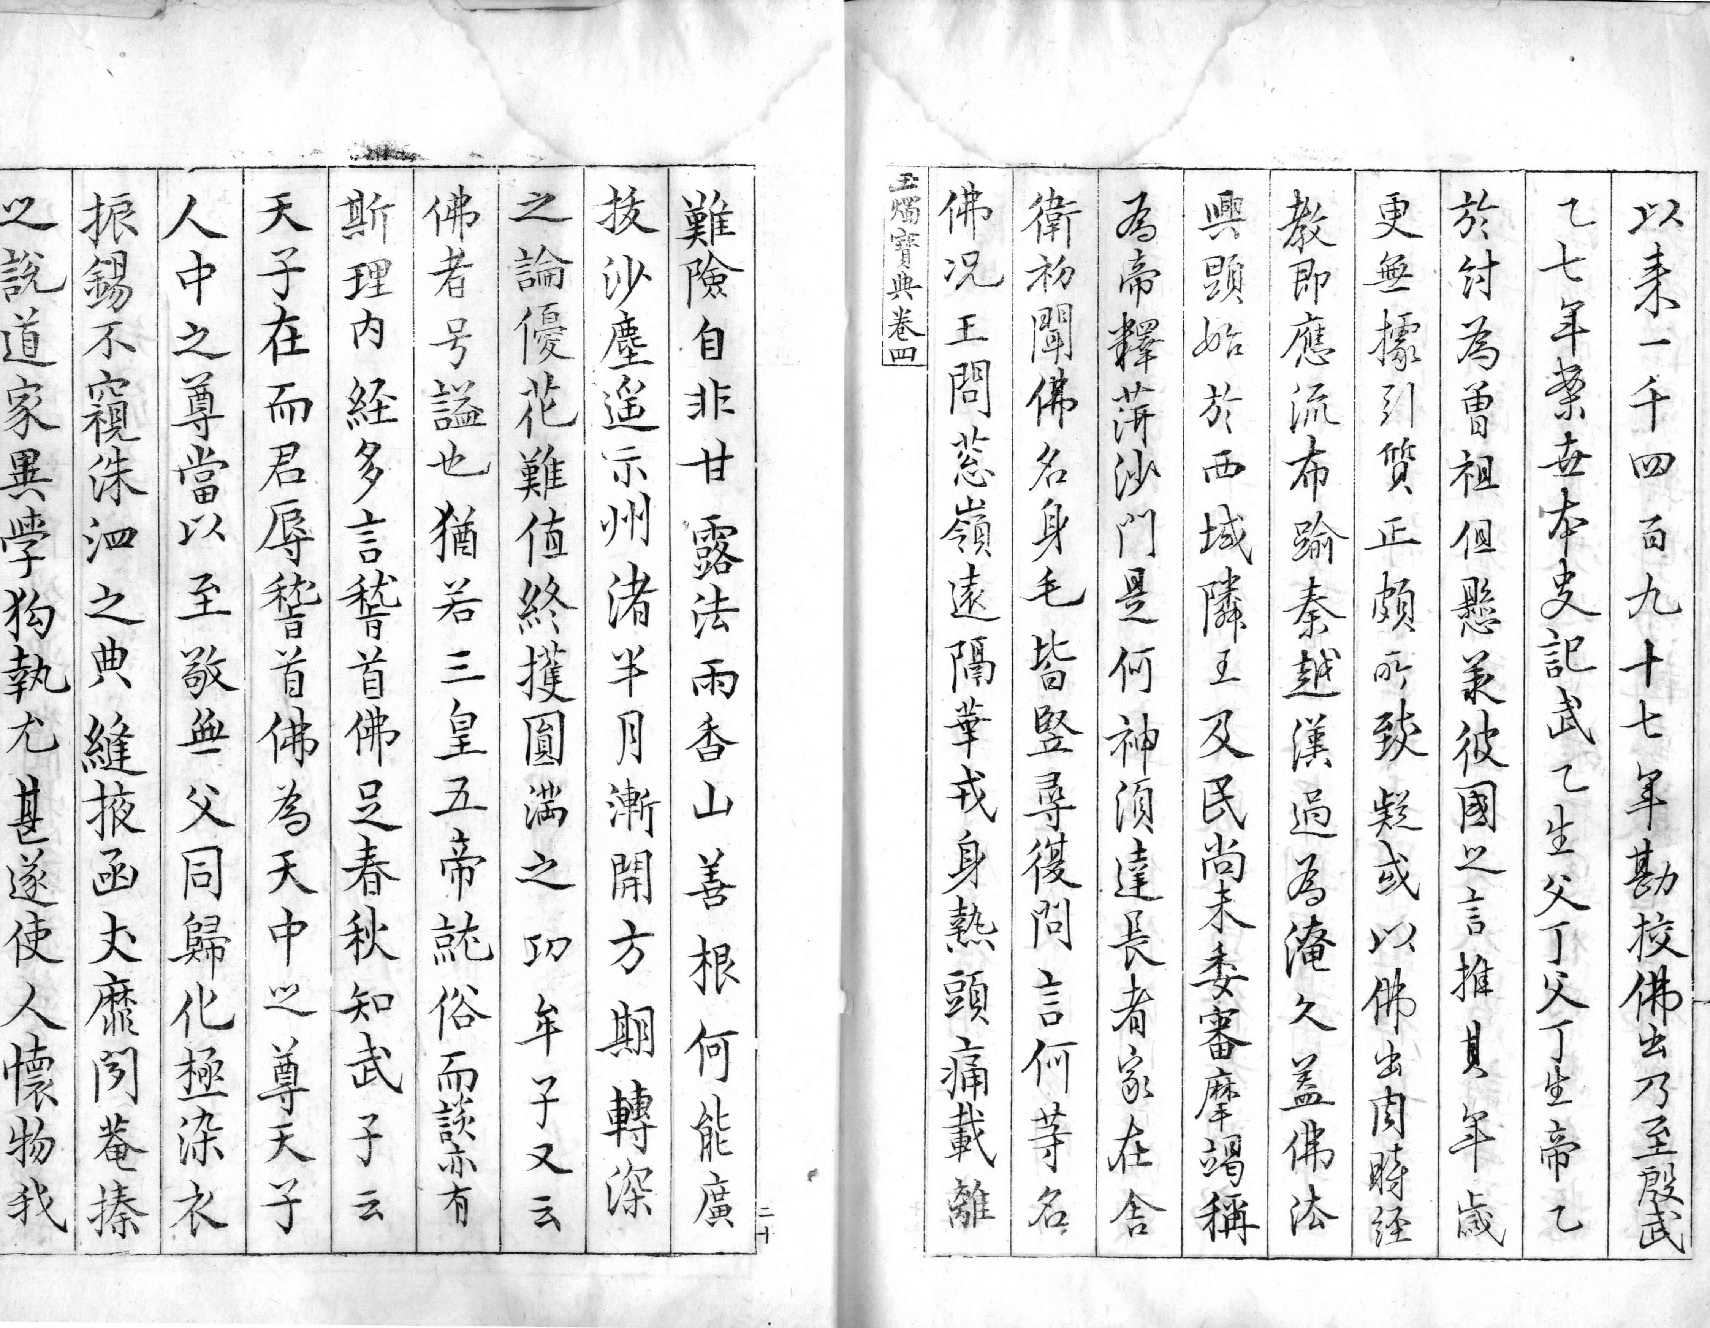 以来一千四百九十七年勘校佛出乃至殷武
乙七年案世本史記武乙生父丁父丁生帝乙
於付為曽祖但懸美彼國之言推其年歳
更無據引質正頗所致疑或以佛出周時経
教即應流布踰秦越漢過為淹久蓋佛法
興顕始於西域隣王及民尚未委審摩竭稱
為帝釋蓱沙門是何神湏達長者家在舎
衛初聞佛名身毛皆竪尋復問言何等名
佛況王問葱嶺遠隔華戎身熱頭痛載離
玉燭寶典卷四
難險自非甘露法雨香山善根何能廣
援沙塵遥示州渚半月漸開方期轉深
之論優花難値終獲圓満之功牟子又云
佛者号謚也猶若三皇五帝就俗而談亦有
斯理内経多言稽首佛足春秋知武子云
天子在而君辱稽首佛為天中之尊天子
人中之尊當以至敬無父同歸化極染衣
振錫不窺洙泗之典縫掖函丈靡閱菴㯤
之說道家異學狗執尤甚遂使人懐物我
二十